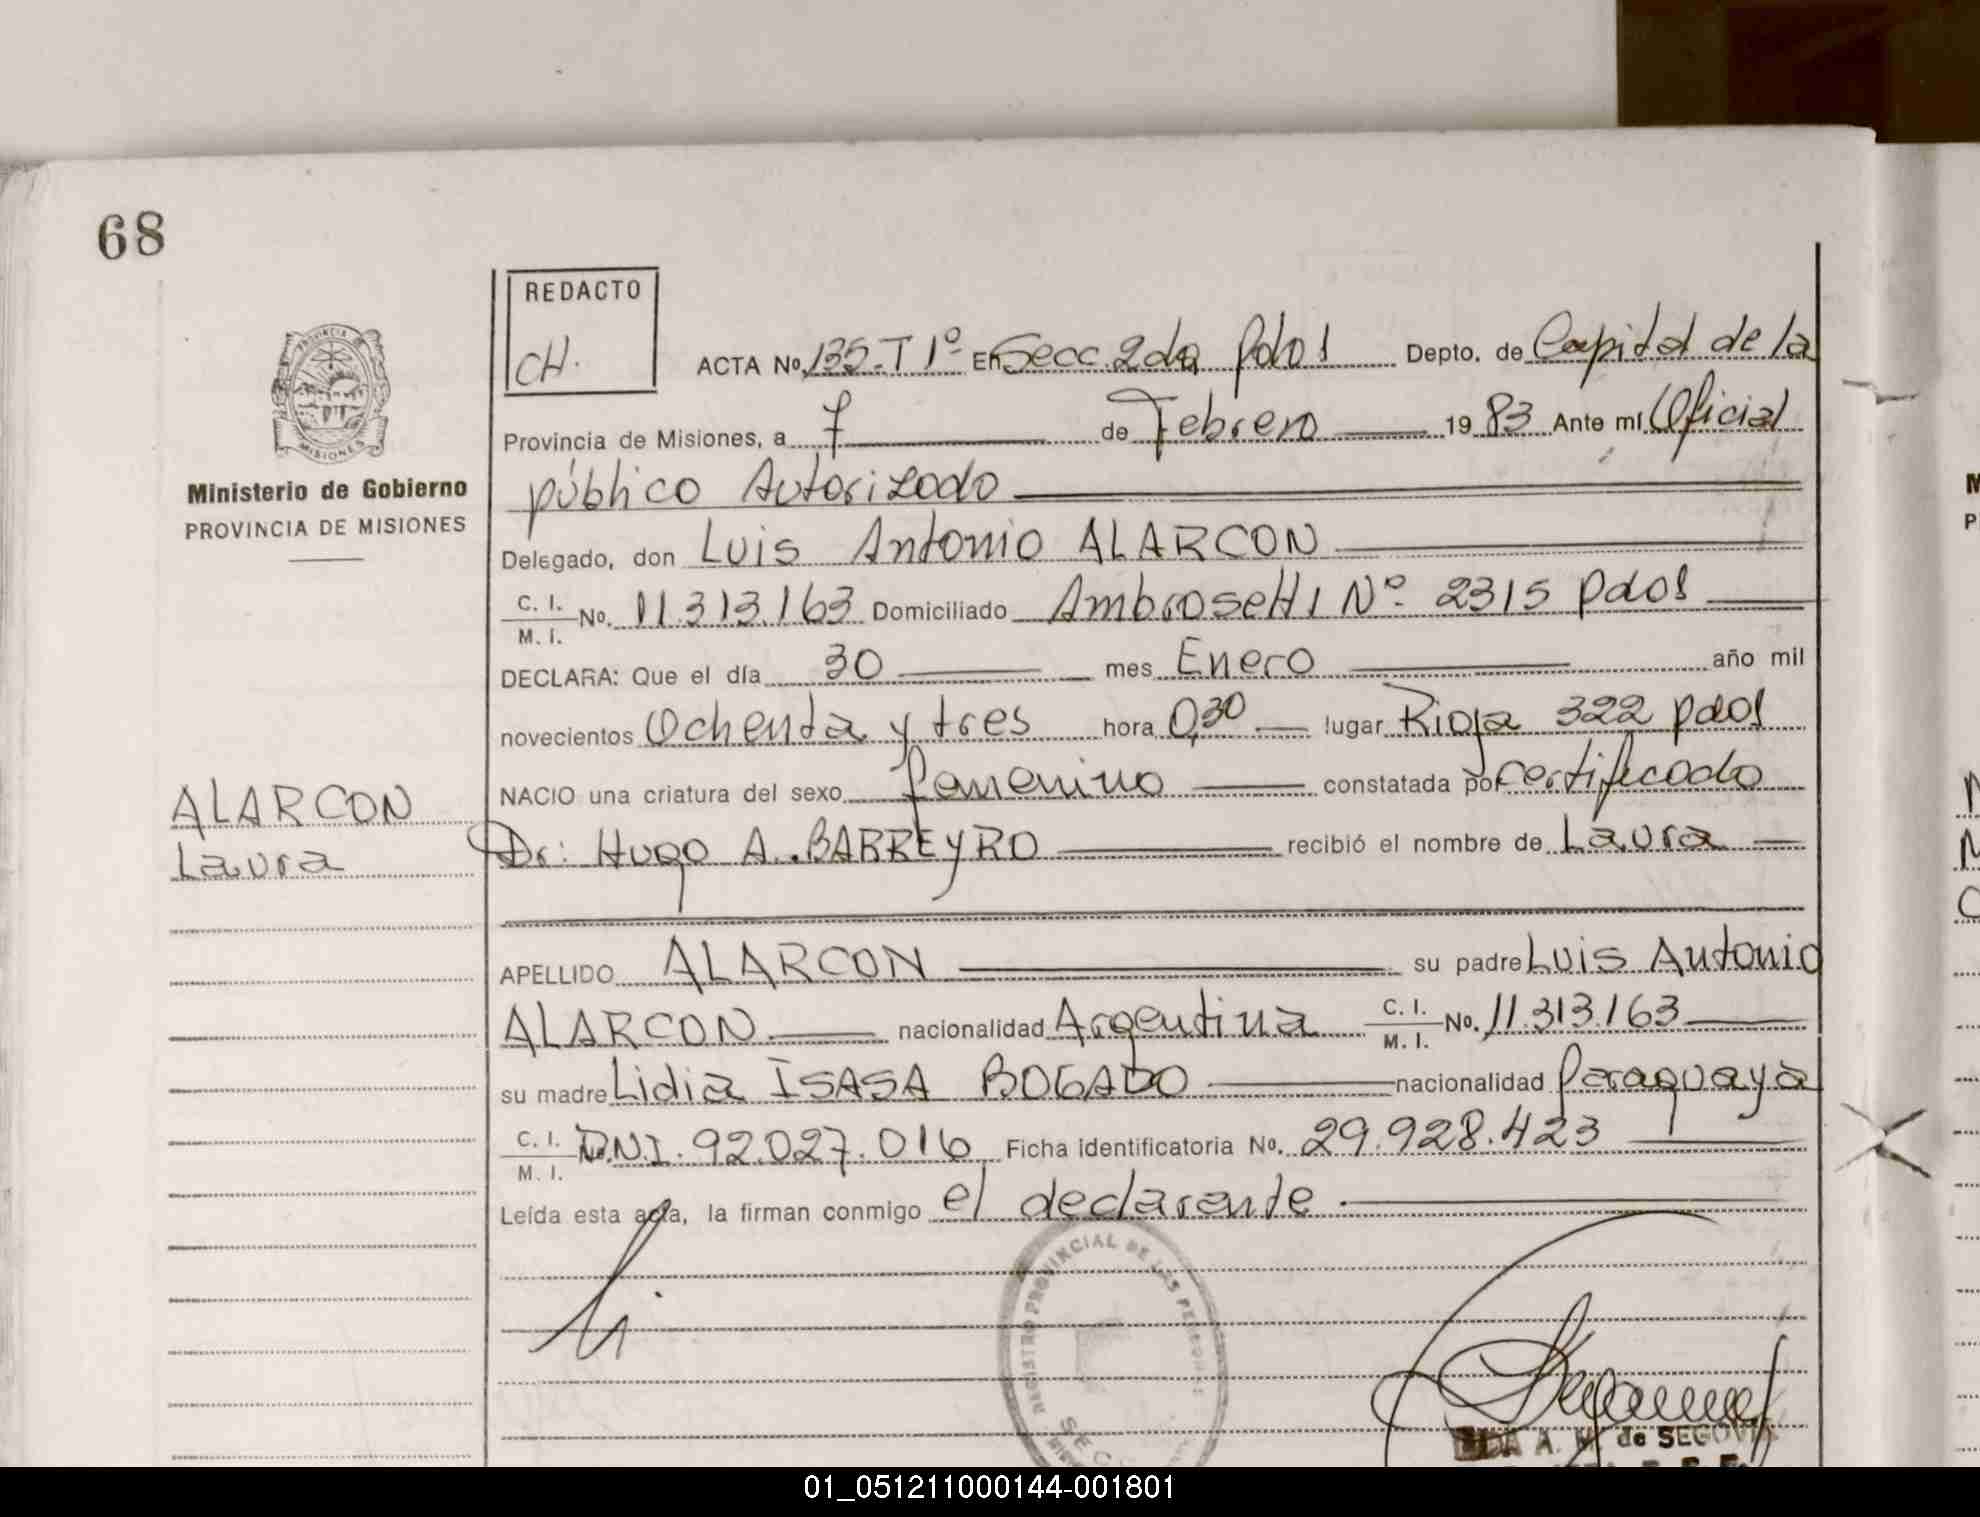 68
REDACTO
CH.
PROVINCIA DE
MISIONES
Ministerio de Gobierno
PROVINCIA DE MISIONES
ACTA No. 135-T 1º En Secc. 2da Pdas Depto. de Capital de la
Provincia de Misiones, a 7 de Febrero 1983 Ante mí Oficial
público Autorizado
Delegado, don Luis Antonio ALARCON
C. I.
M. I. No. 11.313.163 Domiciliado Ambrosetti Nº 2315 Pdas
DECLARA: Que el día 30 mes Enero año mil
novecientos Ochenta y tres hora 0,30 lugar Rioja 322 pdas
NACIO una criatura del sexo femenino constatada por certificado
Dr: Hugo A. BARREYRO recibió el nombre de Laura
ALARCON
Laura
APELLIDO ALARCON su padre Luis Antonio
ALARCON nacionalidad Argentina C. I.
M. I. No. 11.313.163
su madre Lidia ISASA BOGADO nacionalidad Paraguaya
C. I.
M. I. No. D.N.I. 92.027.016 Ficha identificatoria No. 29.928.423
Leída esta acta, la firman conmigo el declarante
REGISTRO PROVINCIAL DE LAS PERSONAS
SECC
A. de SEGOVIA
01_051211000144-001801